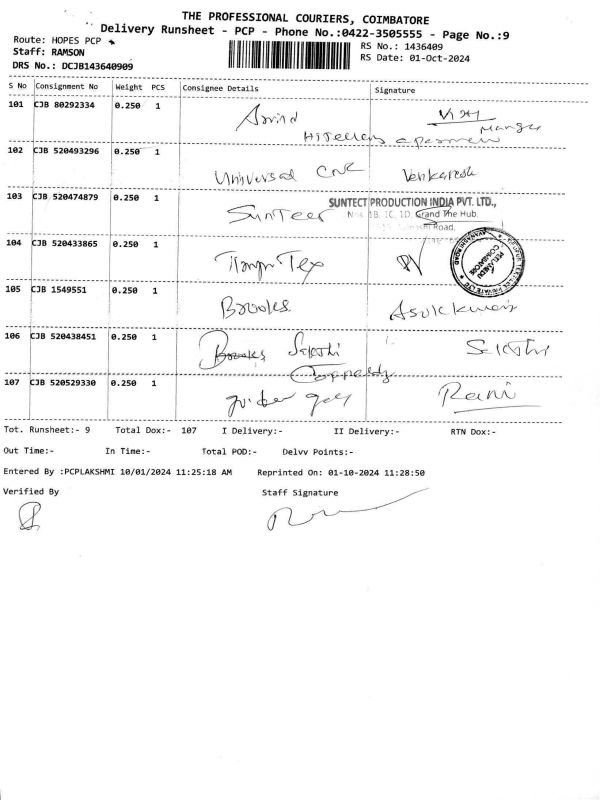 THE PROFESSIONAL COURIERS, COIMBATORE
Delivery Runsheet - PCP - Phone No.:0422-3505555 - Page No.:9
Route: HOPES PCP
Staff: RAMSON
DRS No.: DCJB143640909
RS No.: 1436409
RS Date: 01-Oct-2024
S No Consignment No Weight PCS Consignee Details Signature
101 CJB 80292334 0.250 1 Arvind
102 CJB 520493296 0.250 1 Universal CNC Venkatesh
103 CJB 520474879 0.250 1 Suntec
SUNTECT PRODUCTION INDIA PVT. LTD.,
1B, 1C, 1D, Grand The Hub,
Road,
104 CJB 520433865 0.250 1 Tex
105 CJB 1549551 0.250 1 Brooks Asokkumar
106 CJB 520438451 0.250 1 Brooks Sakthi Sakthi
107 CJB 520529330 0.250 1 Rani
Tot. Runsheet:- 9 Total Dox:- 107 I Delivery:- II Delivery:- RTN Dox:-
Out Time:- In Time:- Total POD:- Delvv Points:-
Entered By :PCPLAKSHMI 10/01/2024 11:25:18 AM Reprinted On: 01-10-2024 11:28:50
Verified By Staff Signature